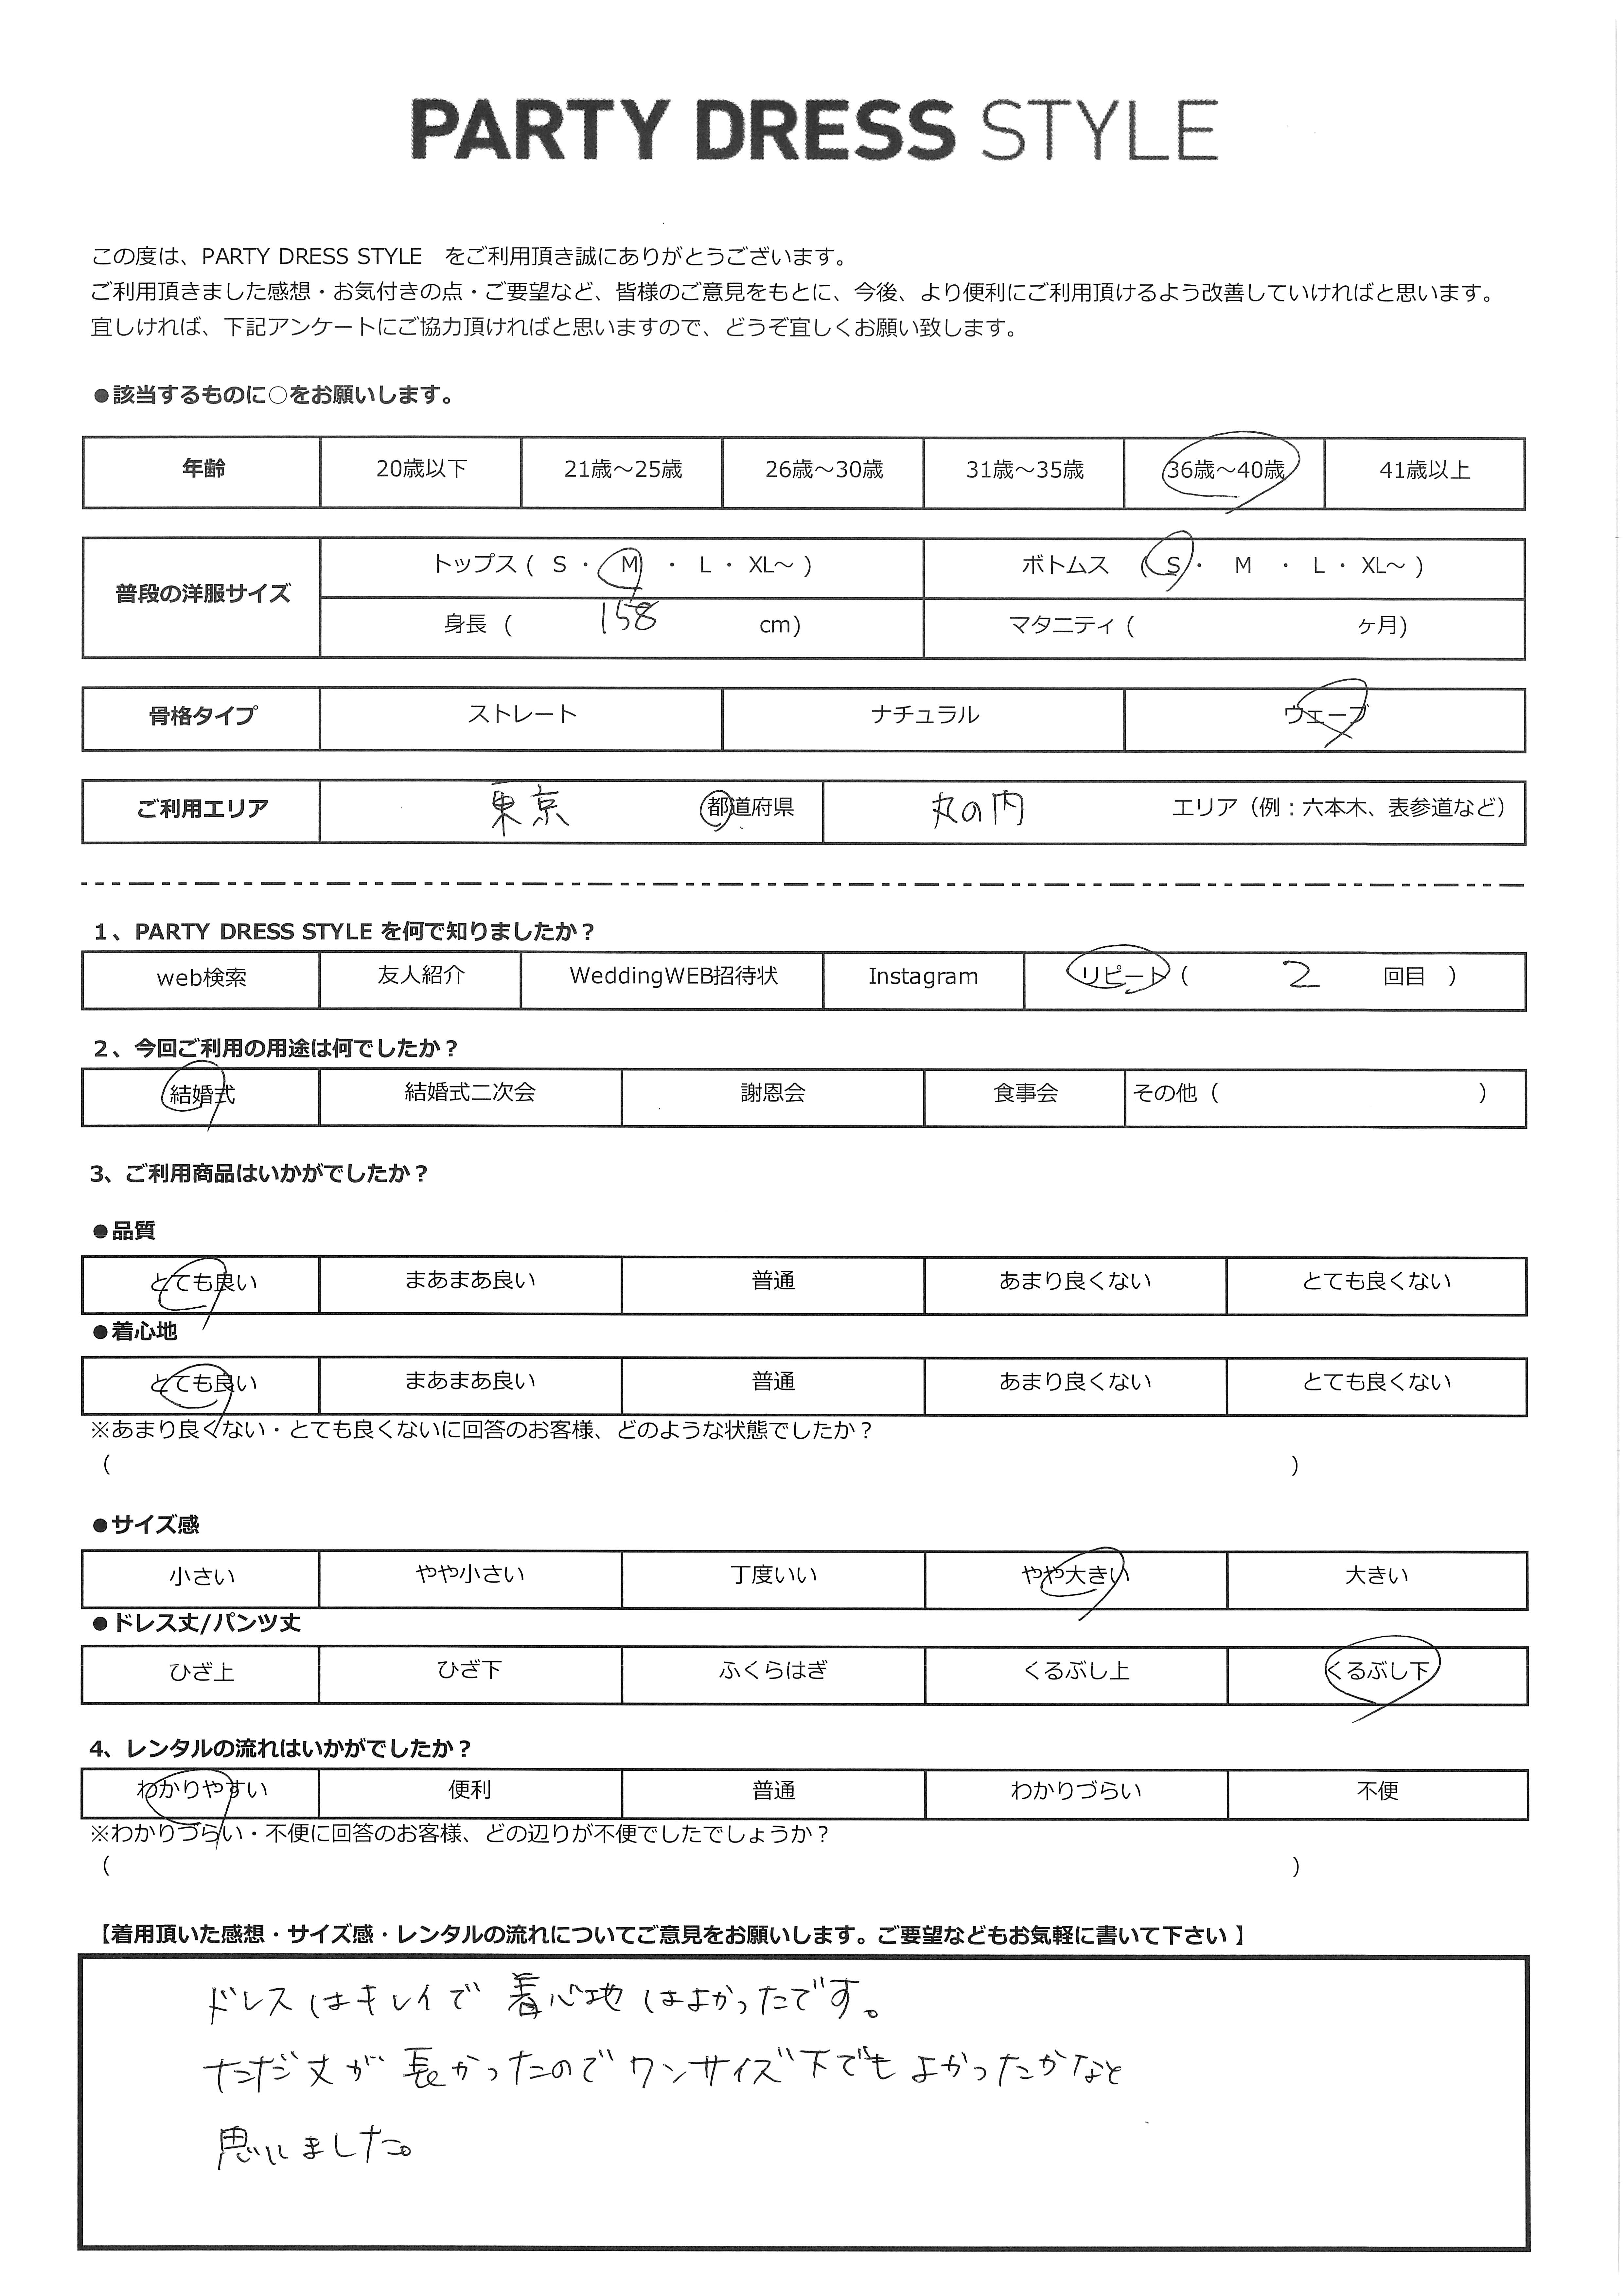 PARTY DRESS STYLE
この度は、PARTY DRESS STYLE　をご利用頂き誠にありがとうございます。
ご利用頂きました感想・お気付きの点・ご要望など、皆様のご意見をもとに、今後、より便利にご利用頂けるよう改善していければと思います。
宜しければ、下記アンケートにご協力頂ければと思いますので、どうぞ宜しくお願い致します。
●該当するものに○をお願いします。
年齢 20歳以下 21歳～25歳 26歳～30歳 31歳～35歳 36歳～40歳 41歳以上
普段の洋服サイズ
トップス ( S ・ M ・ L ・ XL～ ) ボトムス ( S ・ M ・ L ・ XL～ )
身長 ( 158 cm) マタニティ ( ヶ月)
骨格タイプ ストレート ナチュラル ウェーブ
ご利用エリア 東京 都道府県 丸の内 エリア（例：六本木、表参道など）
1、PARTY DRESS STYLE を何で知りましたか？
web検索 友人紹介 WeddingWEB招待状 Instagram リピート ( 2 回目 )
2、今回ご利用の用途は何でしたか？
結婚式 結婚式二次会 謝恩会 食事会 その他 ( )
3、ご利用商品はいかがでしたか？
●品質
とても良い まあまあ良い 普通 あまり良くない とても良くない
●着心地
とても良い まあまあ良い 普通 あまり良くない とても良くない
※あまり良くない・とても良くないに回答のお客様、どのような状態でしたか？
( )
●サイズ感
小さい やや小さい 丁度いい やや大きい 大きい
●ドレス丈/パンツ丈
ひざ上 ひざ下 ふくらはぎ くるぶし上 くるぶし下
4、レンタルの流れはいかがでしたか？
わかりやすい 便利 普通 わかりづらい 不便
※わかりづらい・不便に回答のお客様、どの辺りが不便でしたでしょうか？
( )
【着用頂いた感想・サイズ感・レンタルの流れについてご意見をお願いします。ご要望などもお気軽に書いて下さい 】
ドレスはキレイで 着心地はよかったです。
ただ丈が 長かったのでワンサイズ下でも よかったかなと
思いました。